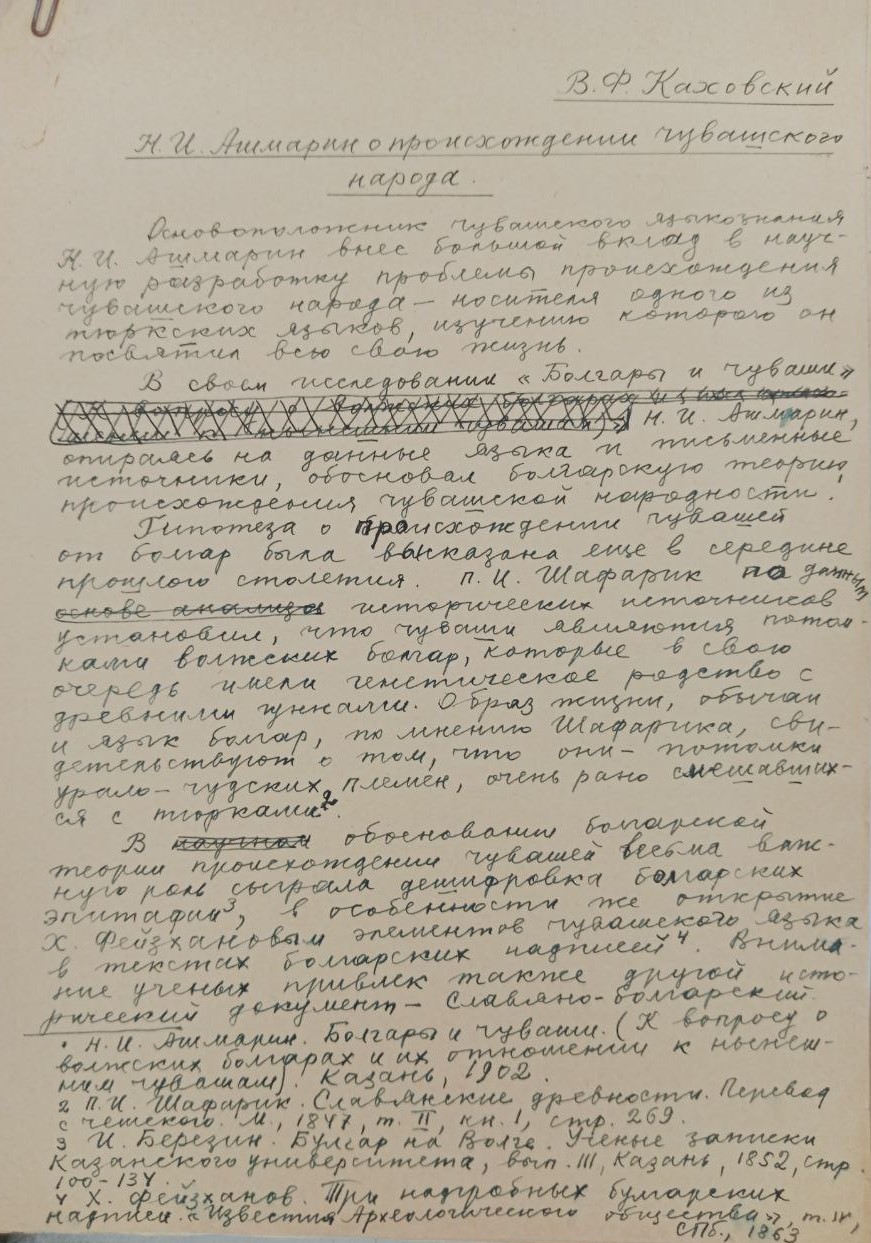 В.Ф. Каховский
Н.И. Ашмарин о происхождении чувашского
народа.
Основоположник чувашского языкознания
Н.И. Ашмарин внес большой вклад в науч-
ную разработку проблемы происхождения
чувашского народа – носителя одного из
тюркских языков, изучению которого он
посвятил всю свою жизнь.
В своем исследовании «Болгары и чуваши»
Н.И. Ашмарин,
опираясь на данные языка и письменные
источники, обосновал болгарскую теорию
происхождения чувашской народности.¹
Гипотеза о происхождении чувашей
от болгар была высказана еще в середине
прошлого столетия. П.И. Шафарик по данным
основе анализа исторических источников
установил, что чуваши являются потом-
ками волжских болгар, которые в свою
очередь имели генетическое родство с
древними гуннами. Образ жизни, обычаи
и язык болгар, по мнению Шафарика, сви-
детельствуют о том, что они – потомки
урало-чудских племен, очень рано смешавших-
ся с тюрками².
В научном обосновании болгарской
теории происхождении чувашей весьма важ-
ную роль сыграла дешифровка болгарских
эпитафий³, в особенности же открытие
Х. Фейзхановым элементов чувашского языка
в текстах болгарских надписей⁴. Внима-
ние ученых привлек также другой исто-
рический документ – Славяно-болгарский
¹ Н.И. Ашмарин. Болгары и чуваши. (К вопросу о
волжских болгарах и их отношении к нынеш-
ним чувашам). Казань, 1902.
2 П.И. Шафарик. Славянские древности. Перевод
с чешского. М., 1847, т. II, кн. 1, стр. 269.
3 И. Березин. Булгар на Волге. Ученые записки
Казанского университета, вып. III, Казань, 1852, стр.
100-134.
4 Х. Фейзханов. Три надгробных булгарских
надписи. «Известия Археологического общества», т. IV,
СПб., 1863